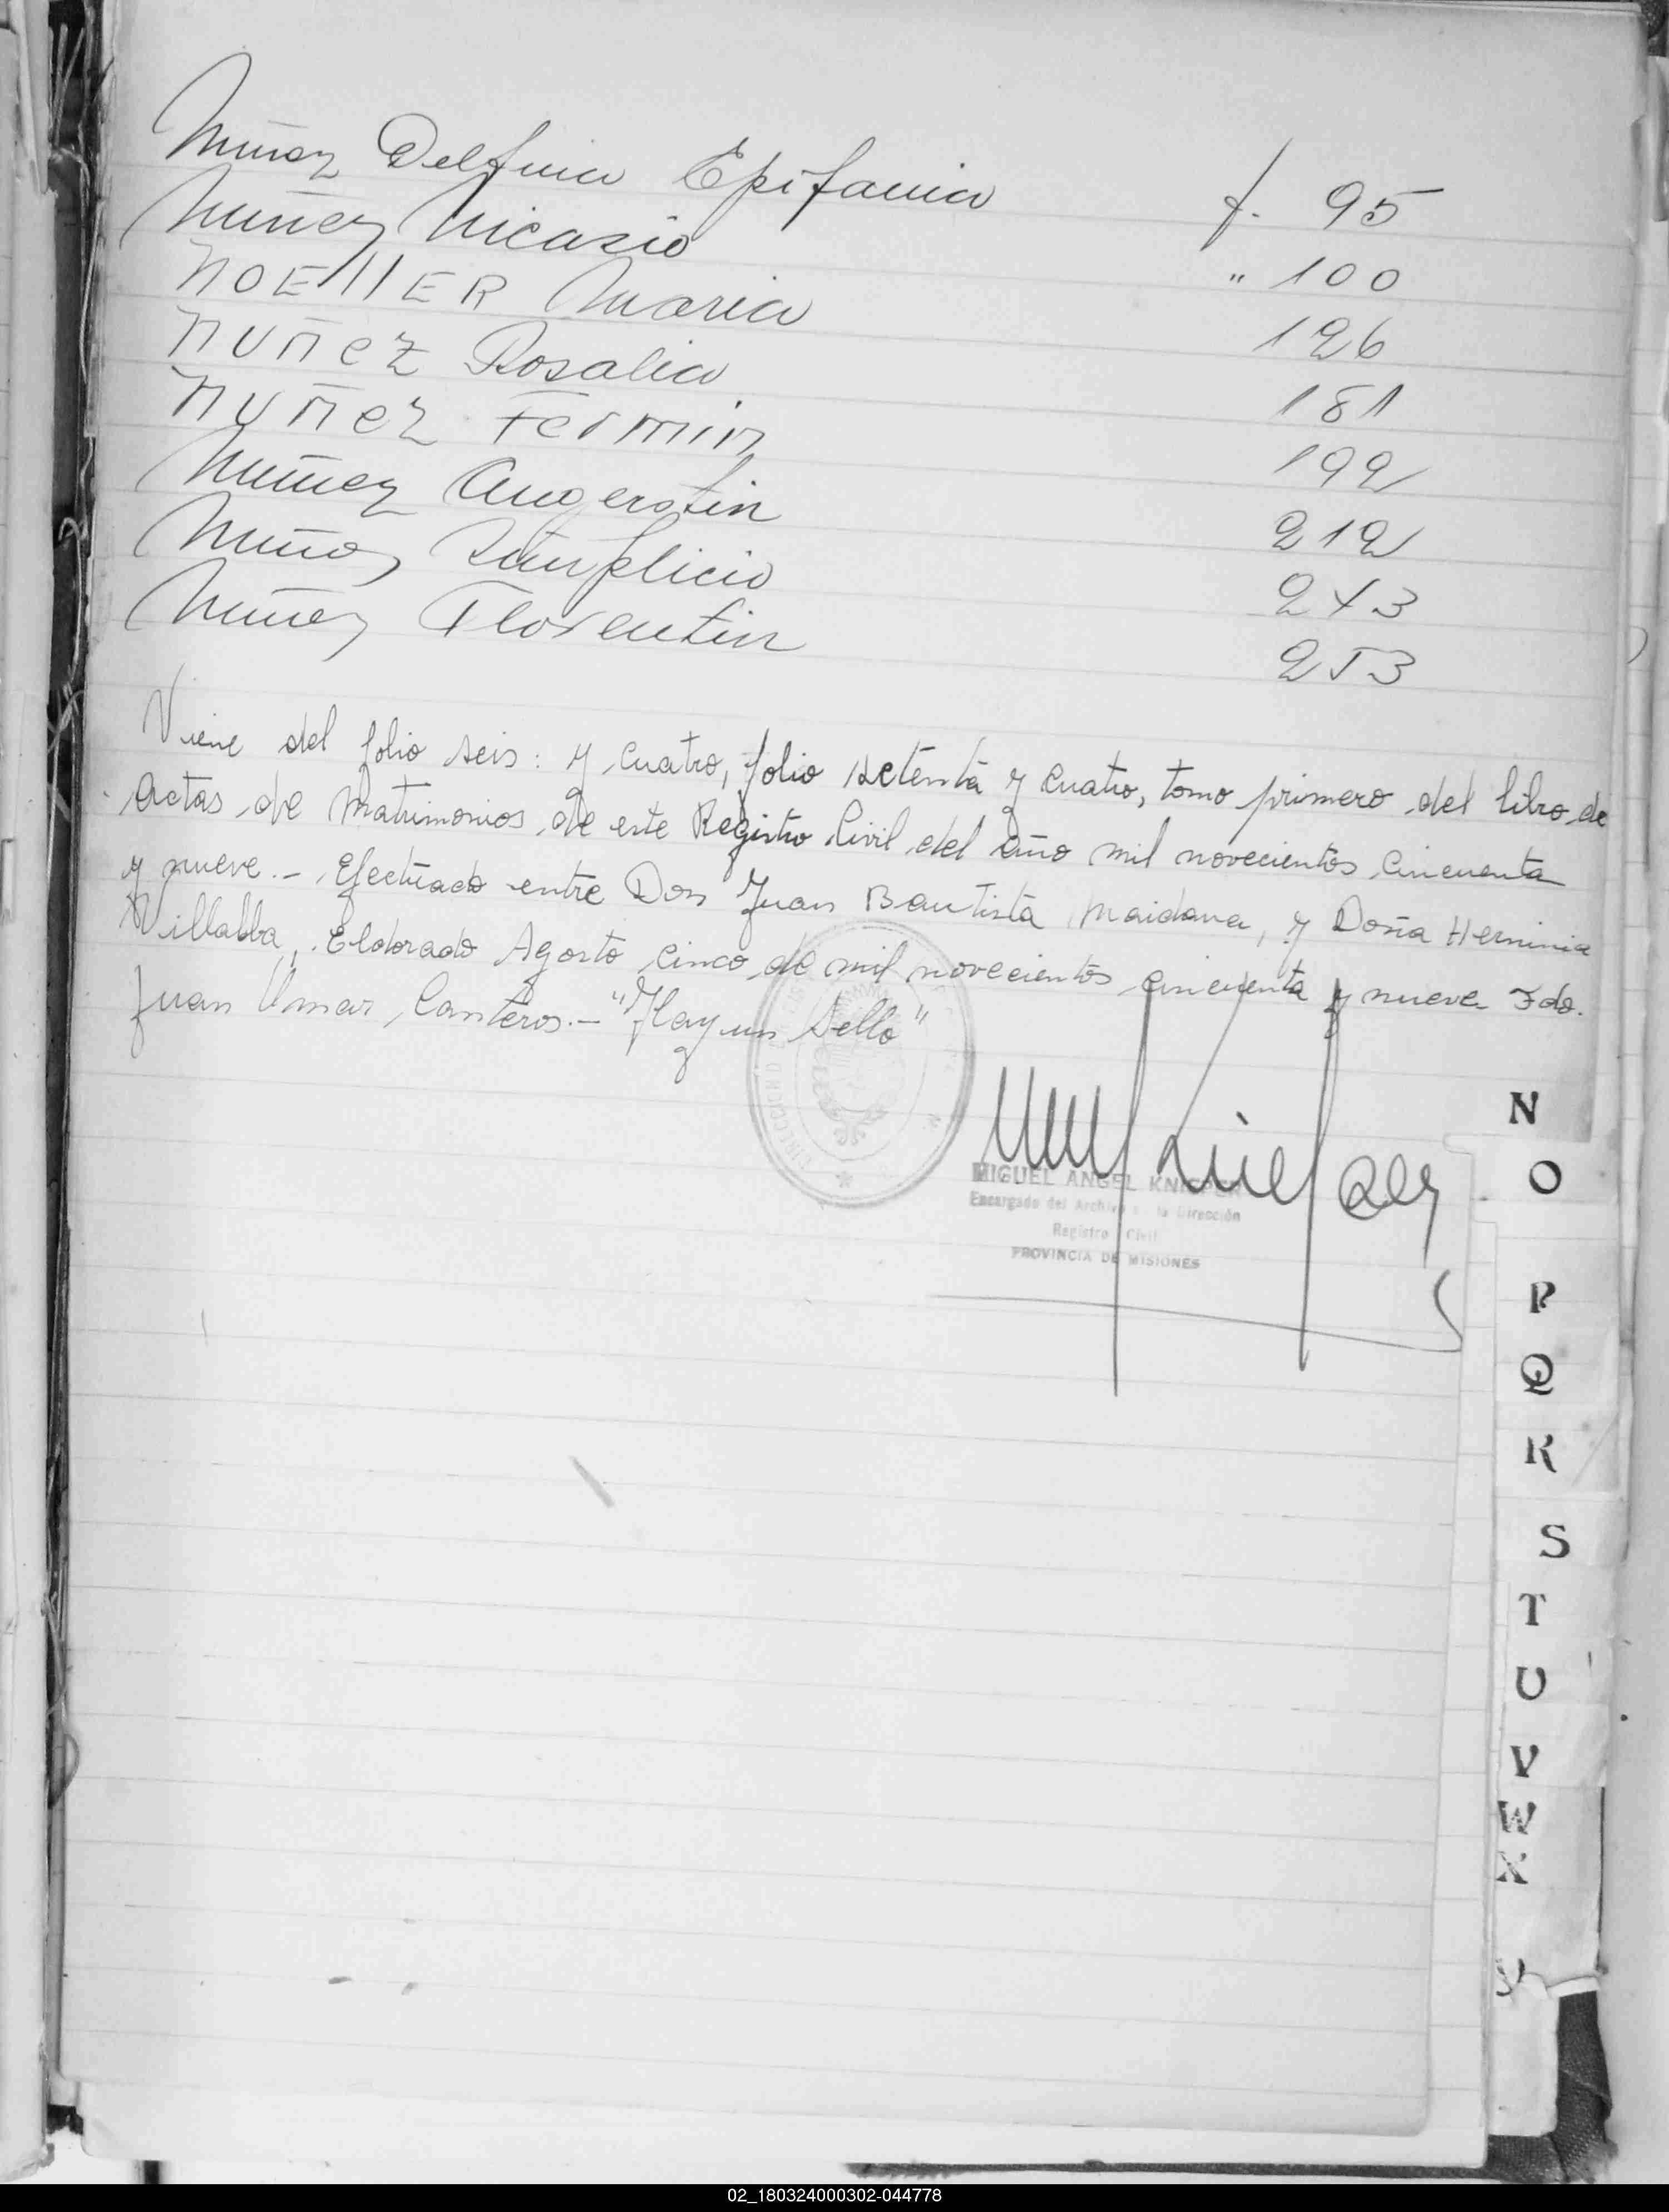 Muñoz Delfina Epifania f. 95
Nuñez Nicasio " 100
NOELLER Maria 126
NUÑEZ Rosalia 181
NUÑEZ Fermin 199
Nuñez Angerstin 212
Muñoz Simplicio 243
Nuñez Florentin 253
Viene del folio seis: y cuatro, folio setenta y cuatro, tomo primero del libro de
actas de Matrimonios de este Registro Civil del año mil novecientos cincuenta
y nueve.- Efectuado entre Don Juan Bautista Maidana, y Doña Herminia
Villalba, Eldorado Agosto cinco de mil novecientos cincuenta y nueve Fdo.
Juan Omar Canteros.- "Hay un Sello"
MIGUEL ANGEL KNIEPER
Encargado del Archivo de la Dirección
Registro Civil
PROVINCIA DE MISIONES
N
O
P
Q
R
S
T
U
V
W
X
02_180324000302-044778